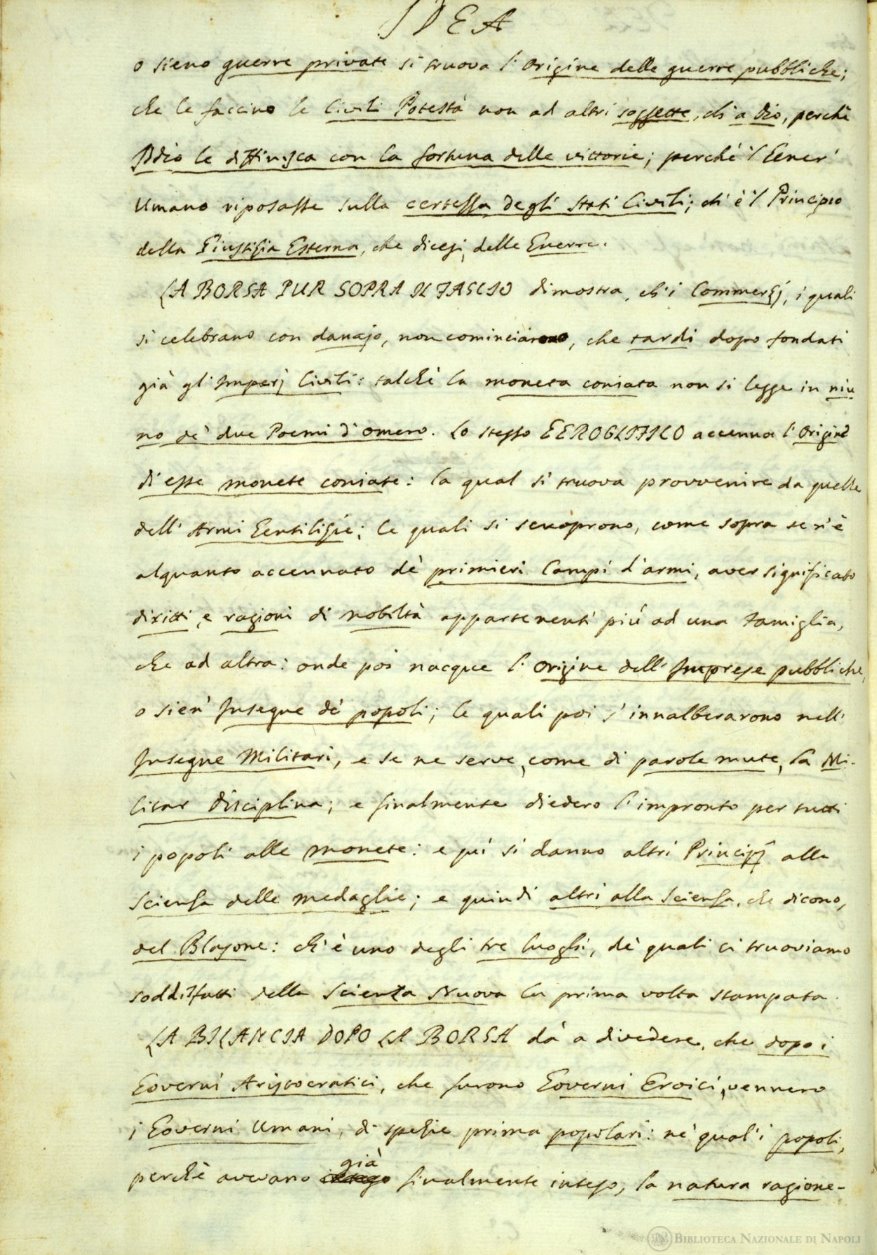 IDEA
o sieno guerre private si truova l'Origine delle guerre pubbliche;
che le faccino le Civili Potestà non ad altri soggette, ch'a Dio, perchè
Iddio le diffinisca con la fortuna delle vittorie; perchè 'l Gener'
Umano riposasse sulla certezza degli Stati Civili; ch'è 'l Principio
della Giustizia Esterna, che dicesi, delle Guerre.
LA BORSA PUR SOPRA IL FASCIO dimostra, ch'i Commerzj, i quali
si celebrano con danajo, non cominciarono, che tardi dopo fondati
già gl'Imperj Civili: talchè la moneta coniata non si legge in niu
no de' due Poemi d'Omero. Lo stesso GEROGLIFICO accenna l'Origine
di esse monete coniate: la qual si truova provvenire da quelle
dell'Armi Gentilizie; le quali si scuoprono, come sopra se n'è
alquanto accennato de' primieri Campi d'armi, aver significato
diritti, e ragioni di nobiltà appartenenti più ad una Famiglia,
che ad altra: onde poi nacque l'Origine dell'Imprese pubbliche,
o sien' Insegne de' popoli; le quali poi s'innalberarono nell'
Insegne Militari, e se ne serve, come di parole mute, la Mi-
litar Disciplina; e finalmente diedero l'impronto per tutti
i popoli alle monete: e quì si danno altri Principj alla
Scienza delle medaglie; e quindi altri alla Scienza, che dicono,
del Blasone: ch'è uno degli tre luoghi, de' quali ci truoviamo
soddisfatti della Scienza Nuova la prima volta stampata.
LA BILANCIA DOPO LA BORSA dà a divedere, che dopo i
Governi Aristocratici, che furono Governi Eroici, vennero
i Governi Umani, di spezie prima popolari: ne' qual' i popoli,
perchè avevano già finalmente inteso, la natura ragione-
BIBLIOTECA NAZIONALE DI NAPOLI